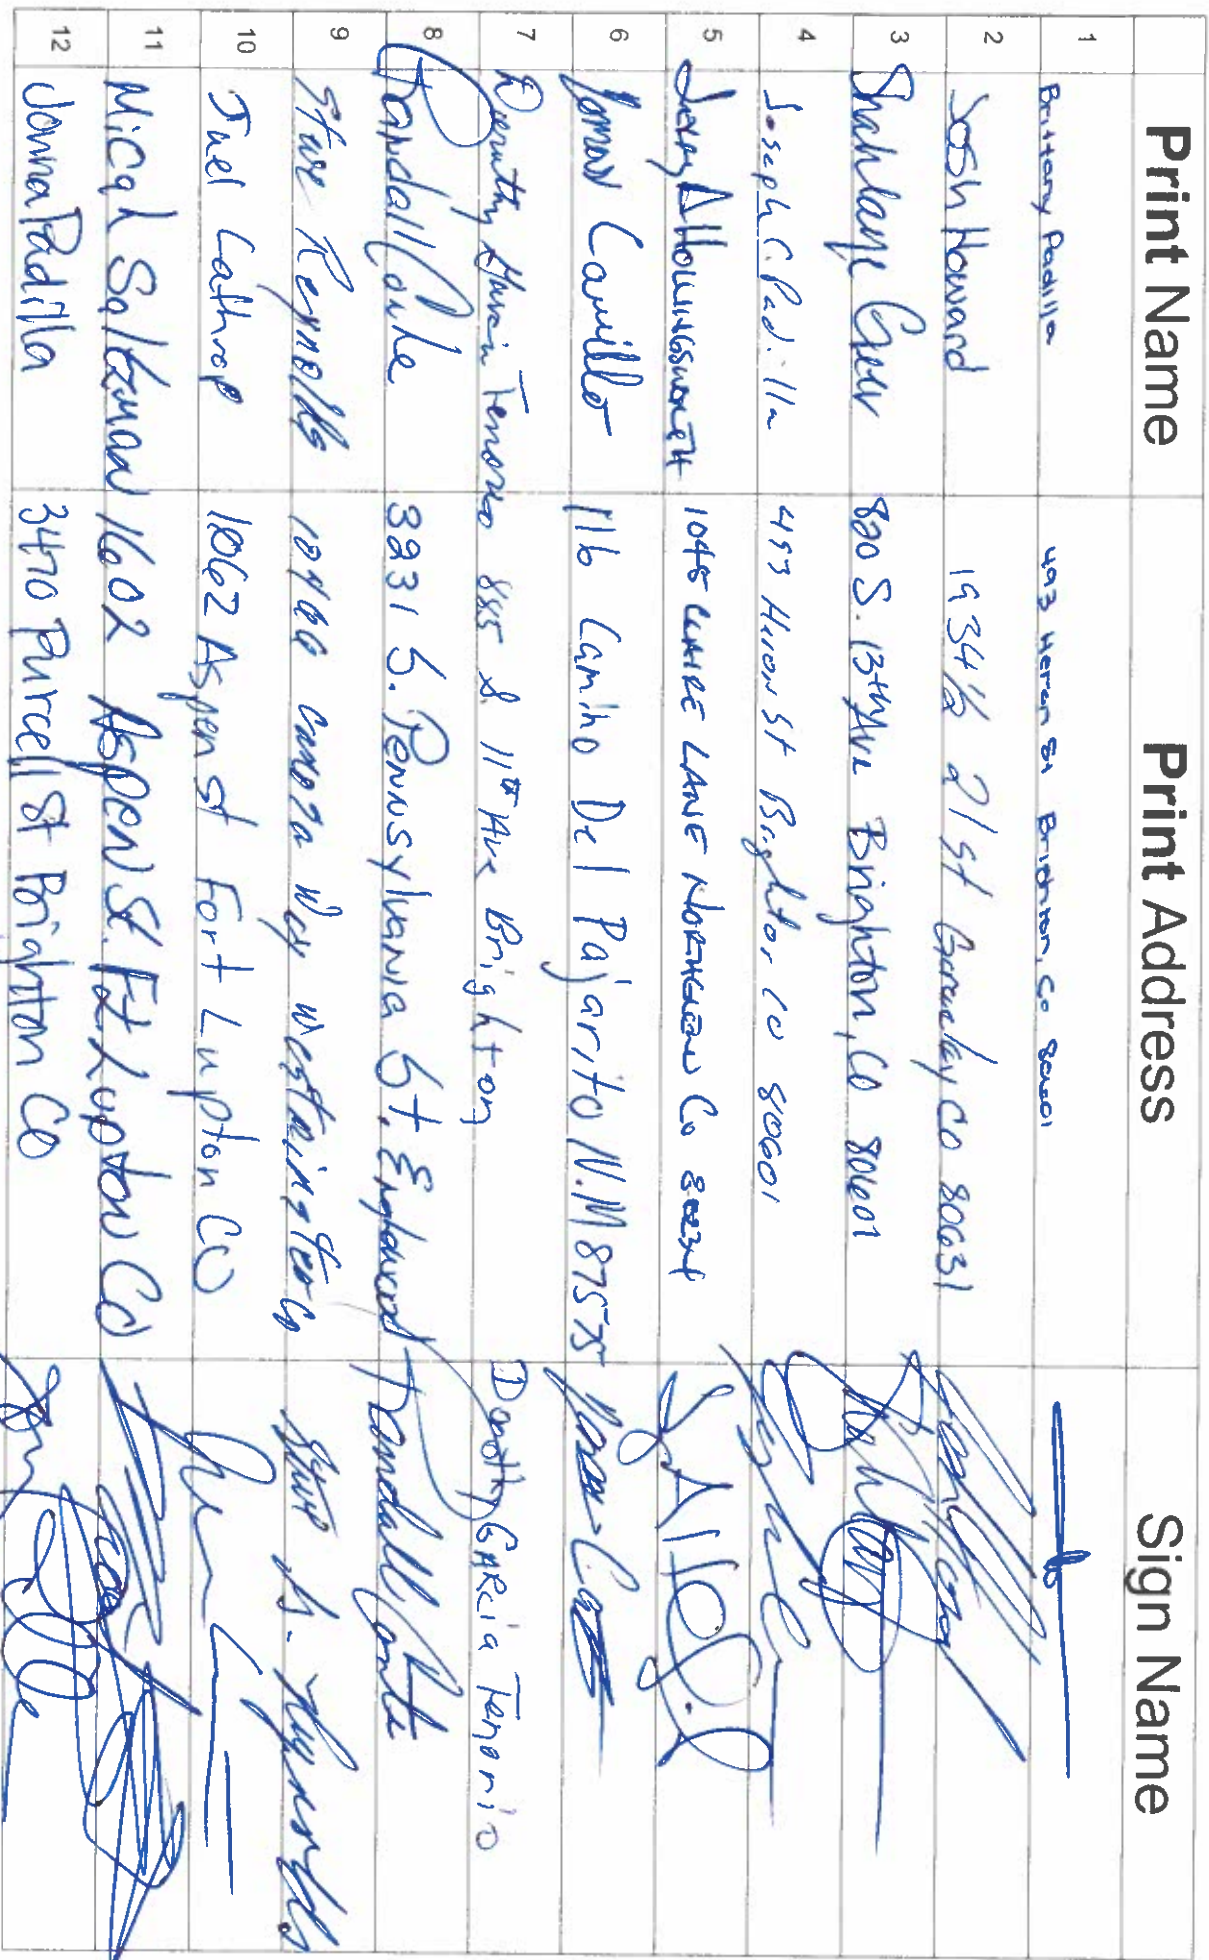 Print Name Print Address Sign Name
1 Brittany Padilla 493 Heron St Brighton, Co 80601
2 Josh Howard 1934½ 21st Greeley CO 80631
3 820 S. 13th Ave Brighton, CO 80601
4 Joseph C. Padilla 493 Heron St Brighton CO 80601
5 Jerry A Hollingsworth 1045 CLAIRE LANE NORTHGLENN Co 80234
6 Carrillo 116 Camino Del Pajarito N.M 87575
7 Dorothy Garcia Tenorio 885 S. 11th Ave Brighton Dorothy Garcia Tenorio
8 Randall Conte 3231 S. Pennsylvania St. Englewood Randall Conte
9 Steve Reynolds Way Westminster Co Steve Reynolds
10 Joel Lathrop 1062 Aspen st Fort Lupton CO
11 Micah Saltzman 1602 Aspen St. Ft Lupton CO
12 Jonna Padilla 3470 Purcell St Brighton Co